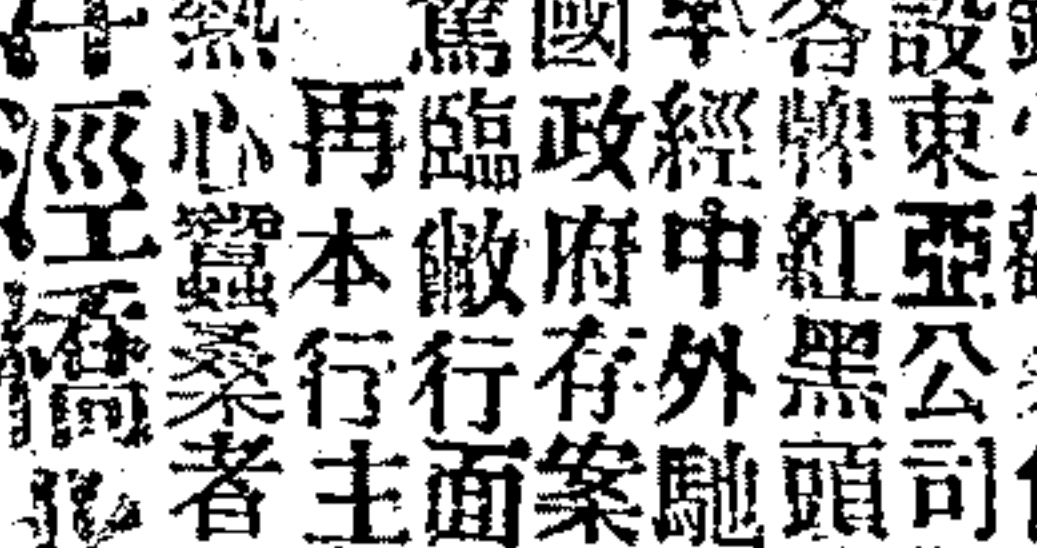 設東亞公司
各牌紅黑頭
經中外馳
國政府存案
駕臨敝行面
再本行主
熱心蠶桑者
涇工橋北